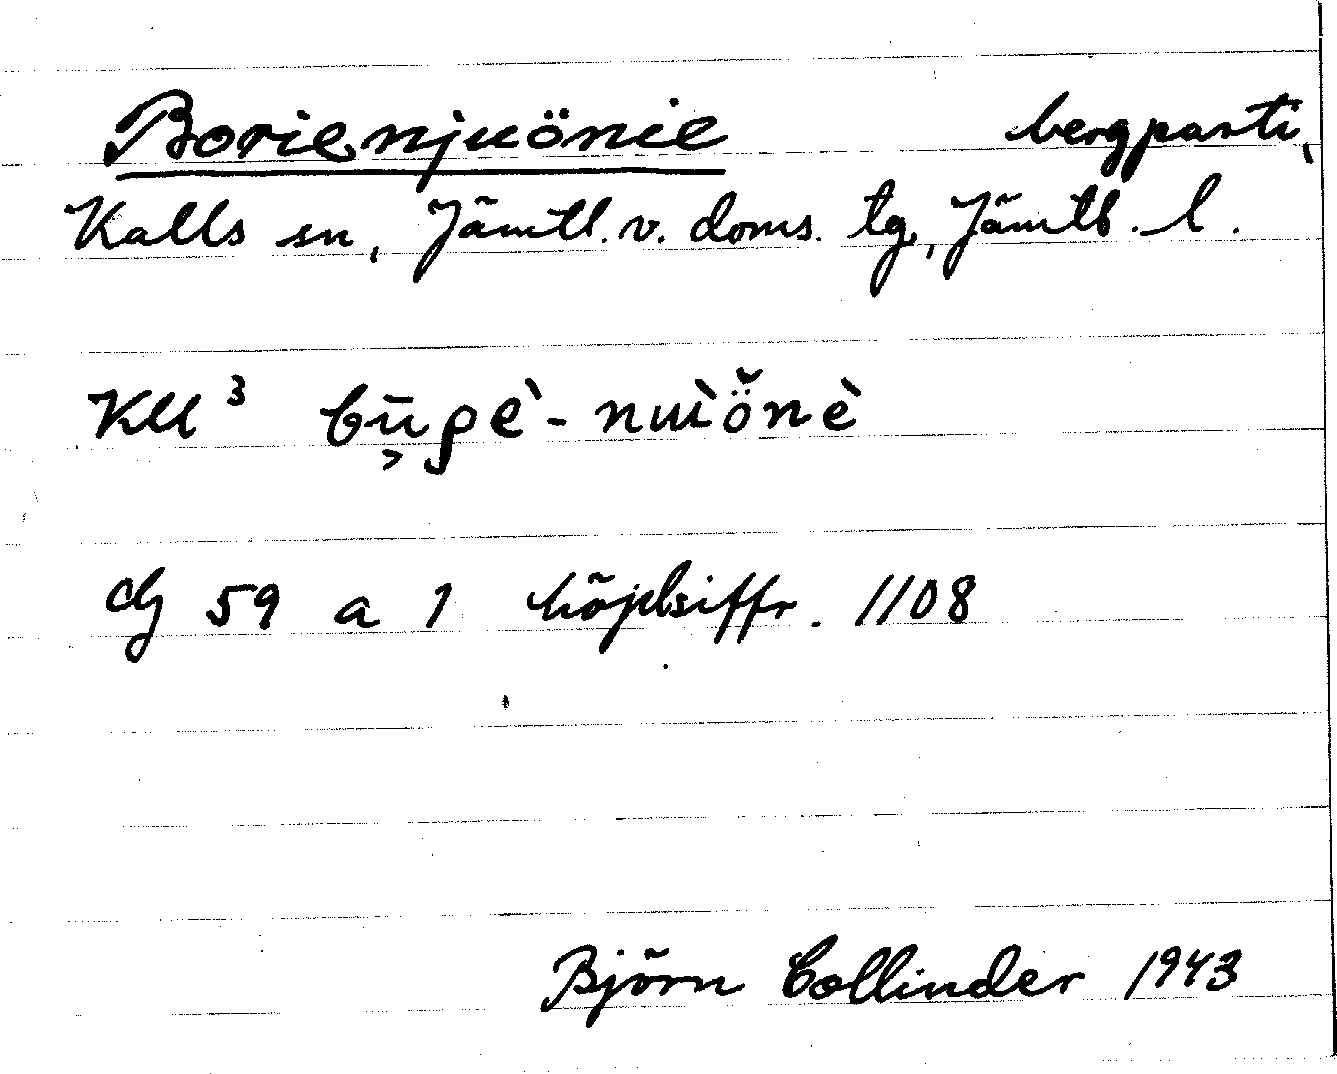 Borienjuönie bergparti,
Kalls sn, Jämtl. v. doms. tg, Jämtl. l.
KU³
dj 59 a 1 höjdsiffr. 1108
Björn Collinder 1943